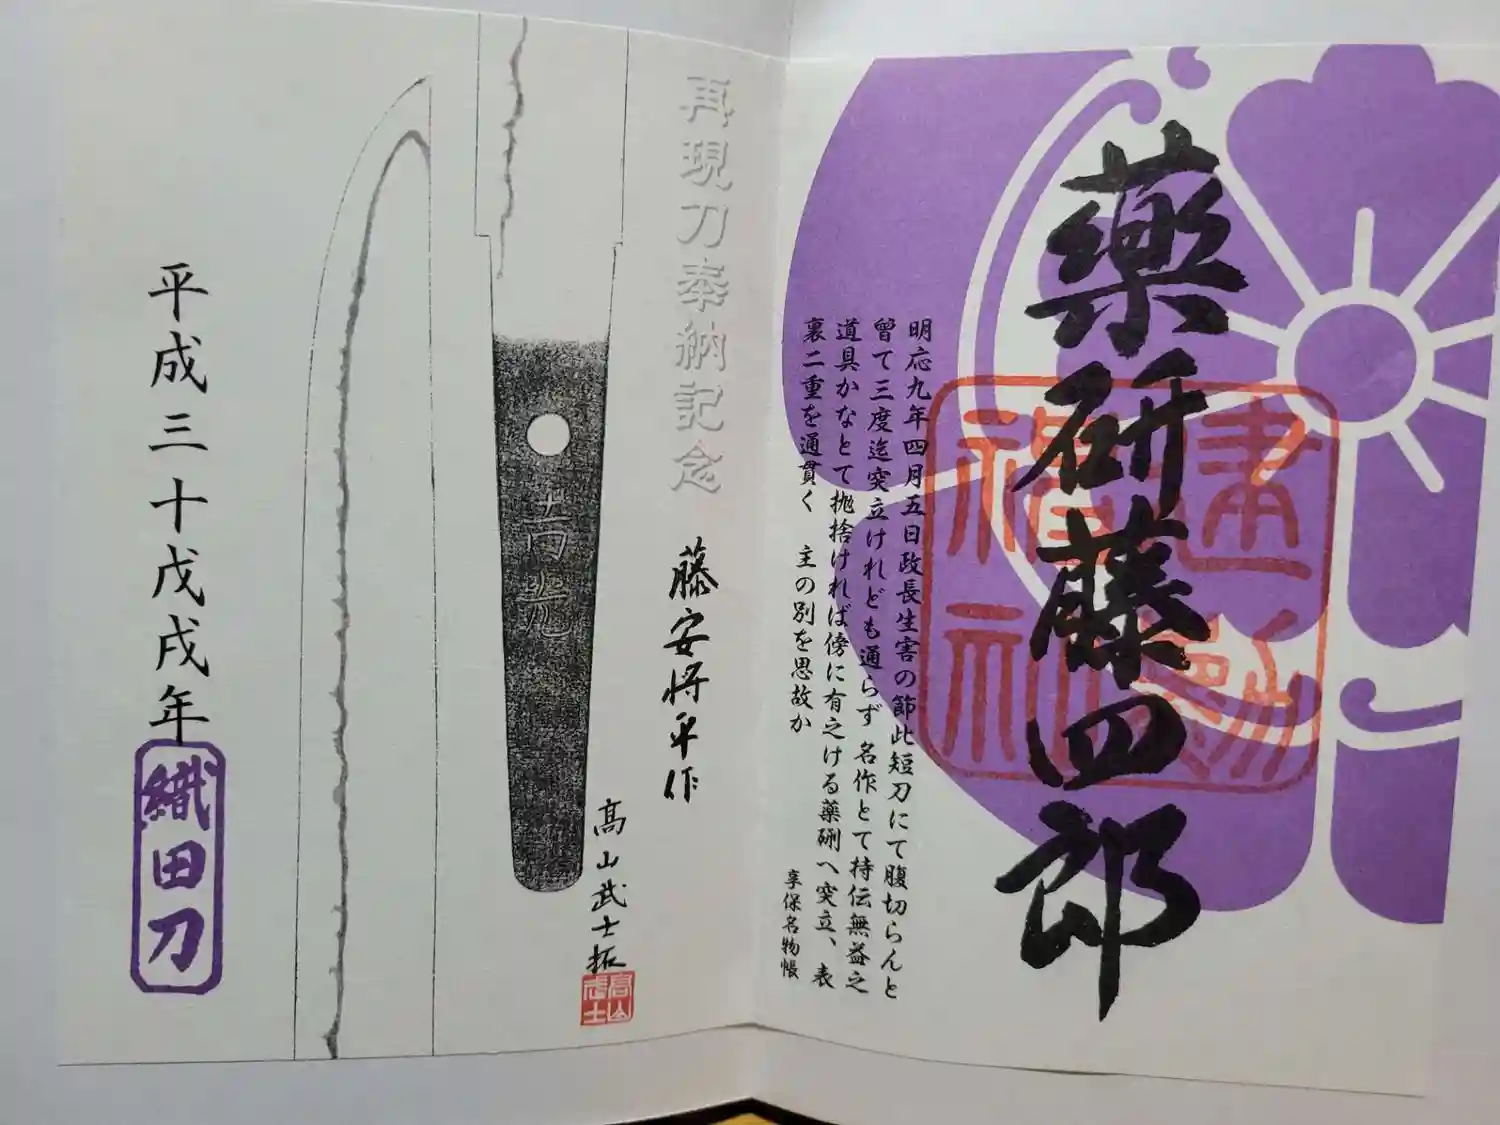 薬研藤四郎
建勲
福社
明応九年四月五日政長生害の節此短刀にて腹切らんと
曾て三度迄突立けれども通らず 名作とて持伝無益之
道具かなとて抛捨ければ傍に有之ける薬研へ突立、表
裏二重を通貫く 主の別を思故か
享保名物帳
再現刀奉納記念
藤安将平作
吉光
高山武士拓
高山
武士
平成三十戊戌年
織田刀